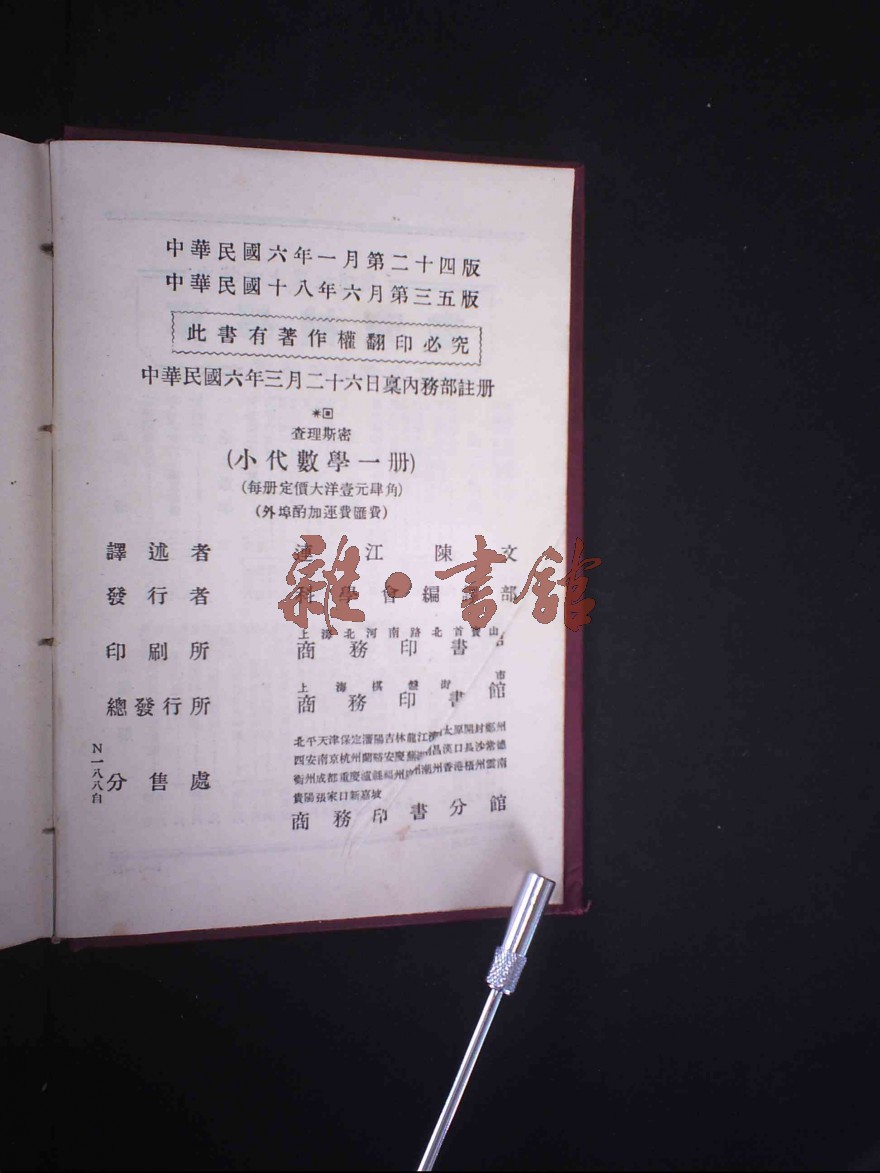 中華民國六年一月第二十四版
中華民國十八年六月第三五版
此書有著作權翻印必究
中華民國六年三月二十六日稟內務部註册
查理斯密
(小代數學一册)
(每册定價大洋壹元肆角)
(外埠酌加運費匯費)
譯述者 連江陳文
發行者 科學會編譯部
印刷所 上海北河南路北首寶山
商務印書
總發行所 上海棋盤街市
商務印書館
分售處 北平天津保定瀋陽吉林龍江 太原開封鄭州
西安南京杭州蘭谿安慶蕪 昌漢口長沙常德
衡州成都重慶瀘縣福州 潮州香港梧州雲南
貴陽張家口新嘉坡
商務印書分館
N一八八自
雜·書館